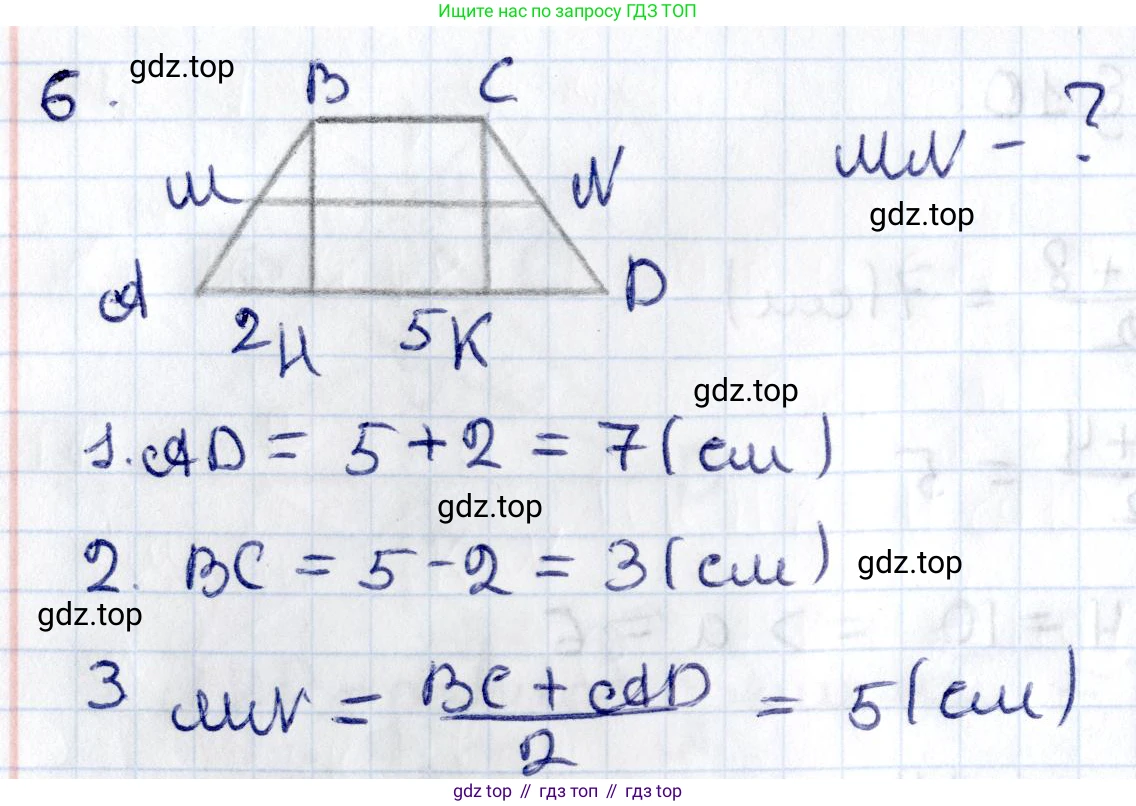 Ищите нас по запросу ГДЗ ТОП
6. gdz.top
B C
MN - ?
M N
gdz.top
A D
2 H 5 K
gdz.top
1. AD = 5 + 2 = 7 (см)
gdz.top
2. BC = 5 - 2 = 3 (см) gdz.top
gdz.top
3 MN = \frac{BC + AD}{2} = 5 (см)
gdz.top // гдз топ // gdz.top